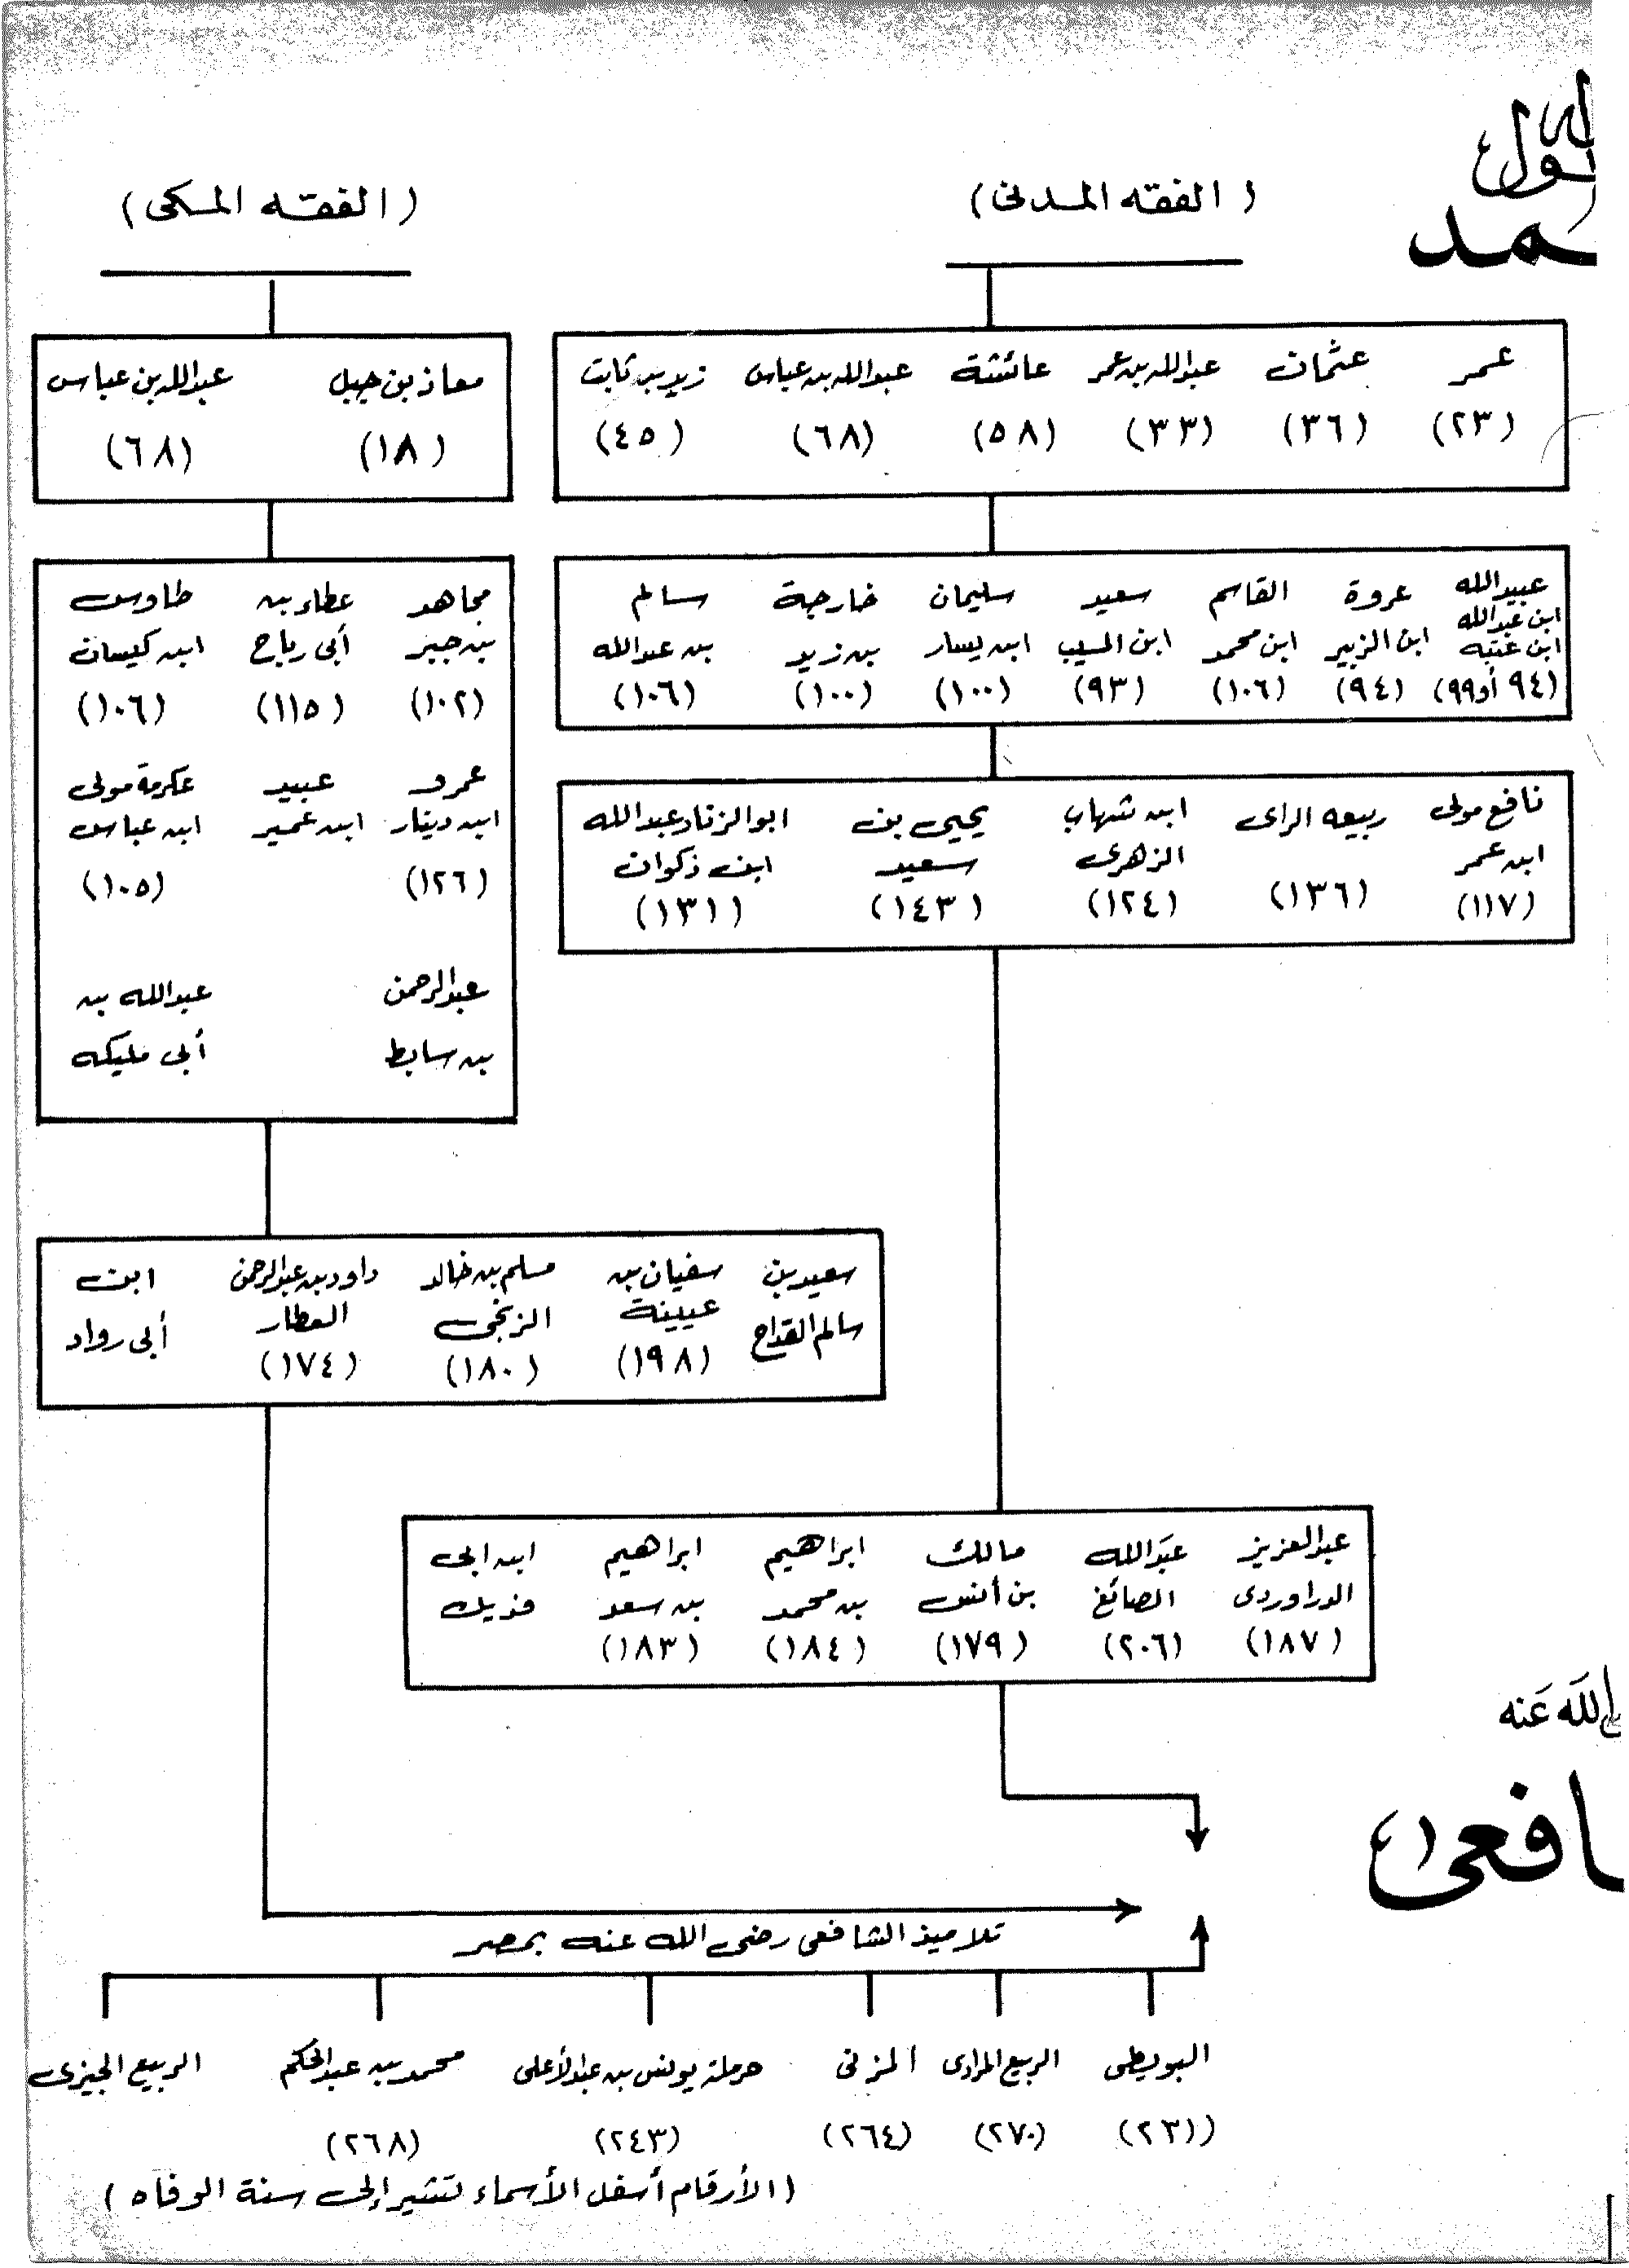 ( الفقه المدنى )
عمر
عثمان
عبدالله بن عمر
عائشة
عبدالله بن عباس
زيد بن ثابت
(٢٣)
(٣٦)
(٣٣)
(٥٨)
(٦٨)
(٤٥)
عبيدالله
ابن عبدالله
ابن عتبه
(٩٤ أو ٩٩)
عروة
ابن الزبير
(٩٤)
القاسم
ابن محمد
(١٠٦)
سعيد
ابن المسيب
(٩٣)
سليمان
ابن يسار
(١٠٠)
خارجة
بن زيد
(١٠٠)
سالم
بن عبدالله
(١٠٦)
نافع مولى
ابن عمر
(١١٧)
ربيعه الراى
(١٣٦)
ابن شهاب
الزهرى
(١٢٤)
يحيى بن
سعيد
(١٤٣)
ابو الزناد عبدالله
ابن ذكوان
(١٣١)
( الفقه المكى )
معاذ بن جبل
(١٨)
عبدالله بن عباس
(٦٨)
مجاهد
بن جبر
(١٠٢)
عطاء بن
أبى رباح
(١١٥)
طاوس
ابن كيسان
(١٠٦)
عمرو
ابن دينار
(١٢٦)
عبيد
ابن عمير
عكرمة مولى
ابن عباس
(١٠٥)
عبدالرحمن
بن سابط
عبدالله بن
أبى مليكه
سعيد بن
سالم القداح
سفيان بن
عيينة
(١٩٨)
مسلم بن خالد
الزنجى
(١٨٠)
داود بن عبدالرحمن
العطار
(١٧٤)
ابن
أبى رواد
عبدالعزيز
الدراوردى
(١٨٧)
عبدالله
الصائغ
(٢٠٦)
مالك
بن أنس
(١٧٩)
ابراهيم
بن محمد
(١٨٤)
ابراهيم
بن سعد
(١٨٣)
ابن ابى
فديك
الله عنه
افعى
تلاميذ الشافعى رضى الله عنه بمصر
البويطى
(٢٣١)
الربيع المرادى
(٢٧٠)
المزنى
(٢٦٤)
حرملة يونس بن عبدالأعلى
(٢٤٣)
محمد بن عبدالحكم
(٢٦٨)
الربيع الجيزى
( الأرقام أسفل الأسماء لتشير إلى سنة الوفاه )